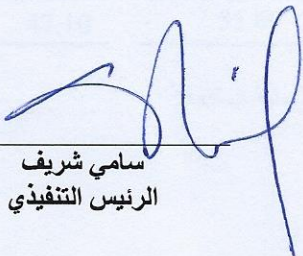 سامي شريف
الرئيس التنفيذي